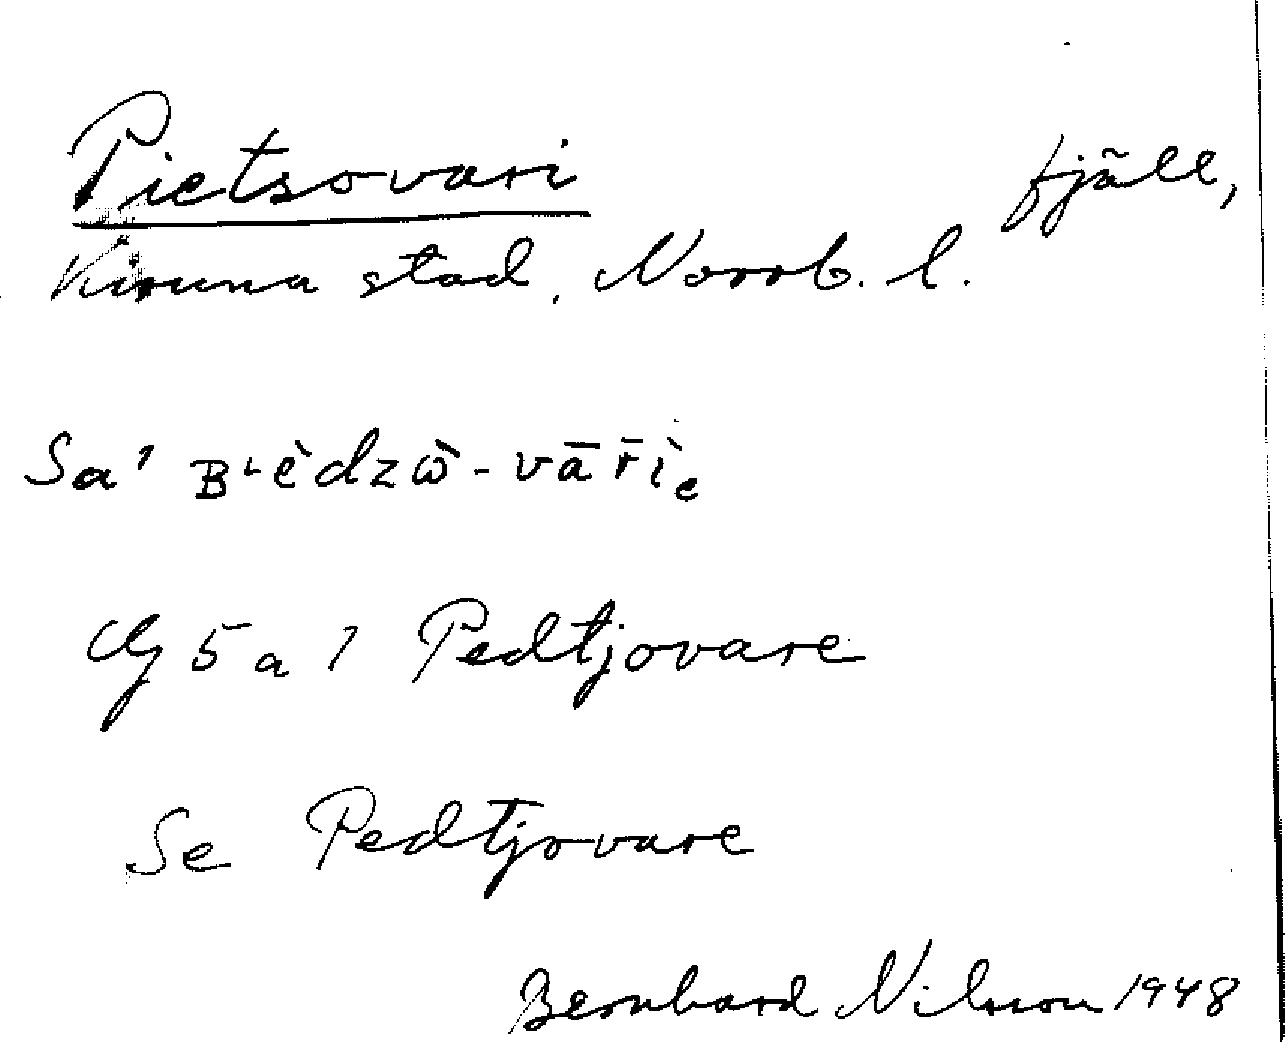 Pietsovari fjäll,
Kiruna stad, Norrb. l.
Sa'
5 a 1 Pedtjovare
Se Pedtjovare
Bernhard Nilsson 1948